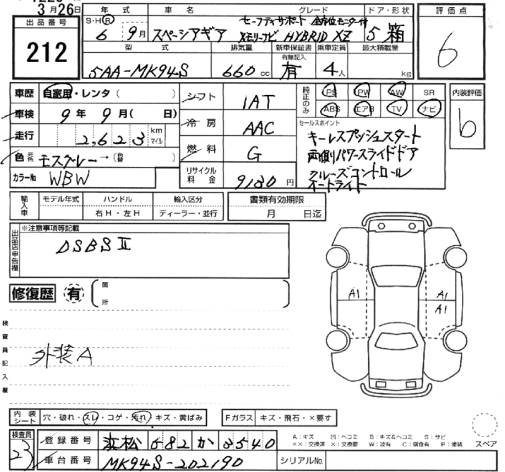 3月26日
出品番号
212
年式 車名 グレード ドア・形状
S・H・R 6年 9月 スペーシアギア セーフティサポート 全方位モニター付 メモリーナビ HYBRID XZ 5 箱
型式 排気量 新車保証書 乗車定員 最大積載量
有無記入
5AA-MK94S 660cc 有 4人 kg
評価点
6
車歴 自家用・レンタ( )
車検 9年 9月( 日)
走行 2,623 km マイル
色 元色 モスグレー→( 色替 )
カラーNo WBW
シフト 1AT
冷房 AAC
燃料 G
リサイクル料金 9180円
純正のみ PS PW AW SR
ABS エアB TV ナビ
セールスポイント
キーレスプッシュスタート
両側パワースライドドア
クルーズコントロール
オートライト
内装評価
b
輸入車 モデル年式 ハンドル 輸入区分
年 右H・左H ディーラー・並行
書類有効期限
月 日迄
出品店申告欄
※注意事項等記載
DSBSⅡ
修復歴 有 箇所
検査員記入欄
外装A
A1 A1
A1
内装シート 穴・破れ・スレ・コゲ・汚れ・キズ・黄ばみ
Fガラス キズ・飛石・×要す
A：キズ U：ヘコミ B：キズ&ヘコミ S：サビ
××：交換済 ×：交換要 W：波有 C：腐食有 P：塗装
スペア
検査員
23
登録番号 浜松 582 か 3540
車台番号 MK94S-202190
シリアルNo